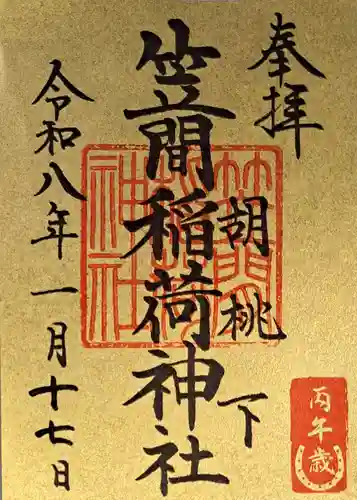 奉拝
胡桃下
笠間稲荷神社
令和八年一月十七日
笠間稲荷神社
丙午歳